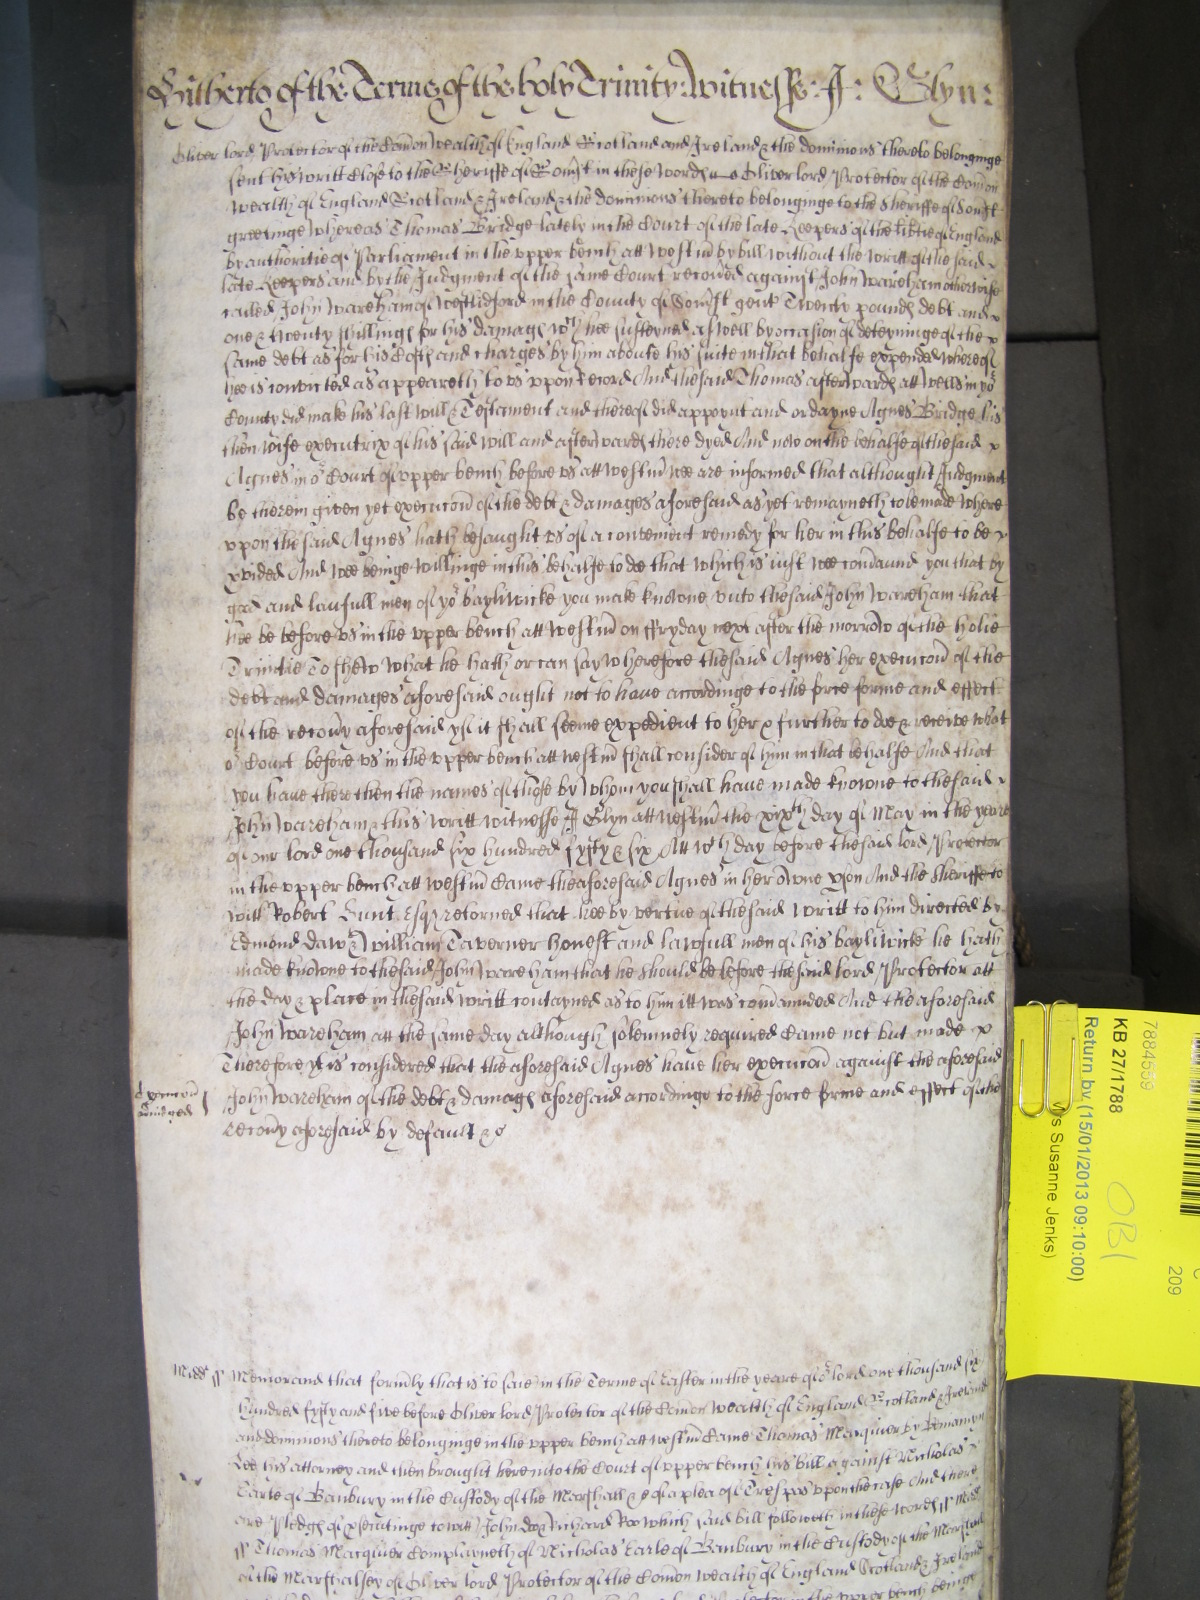 Hitherto of the Terme of the holy Trinity: Witnesse: J: Glyn:
Oliver lord Protector of the Com̄on wealth of England Scotland and Ireland & the dominions thereto belonginge
sent his writt close to the Sheriffe of Som̄st in these words Oliver lord Protector of the Com̄on
wealth of England Scotland & Ireland & the dominions thereto belonginge to the Sheriffe of Som̄st
greetinge whereas Thomas Bridge lately in the Court of the late Keepers of the libtie of England
by authoritie of Parliament in the upper bench att Westm̄ by bill without the writt of the said
late Keepers and by the Judgment of the same Court recoved against John Wareham otherwise
called John Wareham of Westlidford in the County of Som̄st gent Twenty pounds debt and
one & twenty shillings for his damages wch hee susteyned aswell by occasion of deteyninge of the
same debt as for his Costs and charges by him aboute his suite in that behalfe expended whereof
hee is convicted as appeareth to vs vpon record And the said Thomas afterwards att Wells in yor
County did make his last will & Testament and thereof did appoynt and ordayne Agnes Bridge his
then wife executrix of his said will and afterwards there dyed And now on the behalfe of the said
Agnes in or Court of vpper bench before vs att Westm̄ wee are informed that althought Judgment
be therein given yet execucon̄ of the debt & damages aforesaid as yet remayneth to be made Where
vpon the said Agnes hath besaught vs of a convenient remedy for her in this behalfe to be
pvided And wee beinge willinge in this behalfe to doe that which is iust wee com̄aund you that by
good and laufull men of yor bayliwicke you make knowne vnto the said John Wareham that
hee be before vs in the vpper bench att Westm̄ on ffryday next after the morrow of the holie
Trinitie To shew what he hath or can say wherefore the said Agnes her execucon̄ of the
debt and damages aforesaid ought not to have accordinge to the force forme and effect
of the recovy aforesaid yf it shall seeme expedient to her & further to doe & receive what
or Court before vs in the vpper bench att Westm̄ shall consider of him in that behalfe And that
you have there then the names of those by whom you shall have made knowne to the said
John Wareham & this writt witnesse J Glyn att Westm̄ the xixth day of May in the yeare
of our lord one thousand six hundred fyfty & six Att wch day before the said lord Protector
in the vpper bench att Westm̄ Came the aforesaid Agnes in her owne pson And the Sheriffe to
witt Robert Hunt Esqr returned that hee by vertue of the said writt to him directed by
Edmond Dawe & William Taverner honest and lawfull men of his bayliwicke he hath
made knowne to the said John Wareham that he should be before the said lord Protector att
the day & place in the said writt contayned as to him itt was com̄anded And the aforesaid
John Wareham att the same day although solemnely required Came not but made
Therefore yt is considered that the aforesaid Agnes have her execucon̄ against the aforesaid
Execucon̄
adiudged
John Wareham of the debt & damages aforesaid accordinge to the force forme and effect of the
recovy aforesaid by default &c
Midd ss Memorand that form̄ly that is to saie in the Terme of Easter in the yeare of or lord one thousand six
hundred fyfty and five before Oliver lord Protector of the Com̄on wealth of England Scotland & Ireland
and dominions thereto belonginge in the vpper bench att Westm̄ Came Thomas Macquier by Beniamyn
Lee his attorney and then brought here into the Court of vpper bench his bill against Nicholas
Earle of Banbury in the Custody of the Marshall &c of a plea of Trespas vpon the case And there
are pledges of psecutinge to witt John Doe & Richard Roe which said bill followeth in these words ss Midd
ss Thomas Macquier Complayneth of Nicholas Earle of Banbury in the Custody of the Marshall
of the Marshalsey of Oliver lord Protector of the Com̄on wealth of England Scotland & Ireland
in the vpper bench beinge
7884559
KB 27/1788
Return by (15/01/2013 09:10:00)
Ms Susanne Jenks)
OB1
209